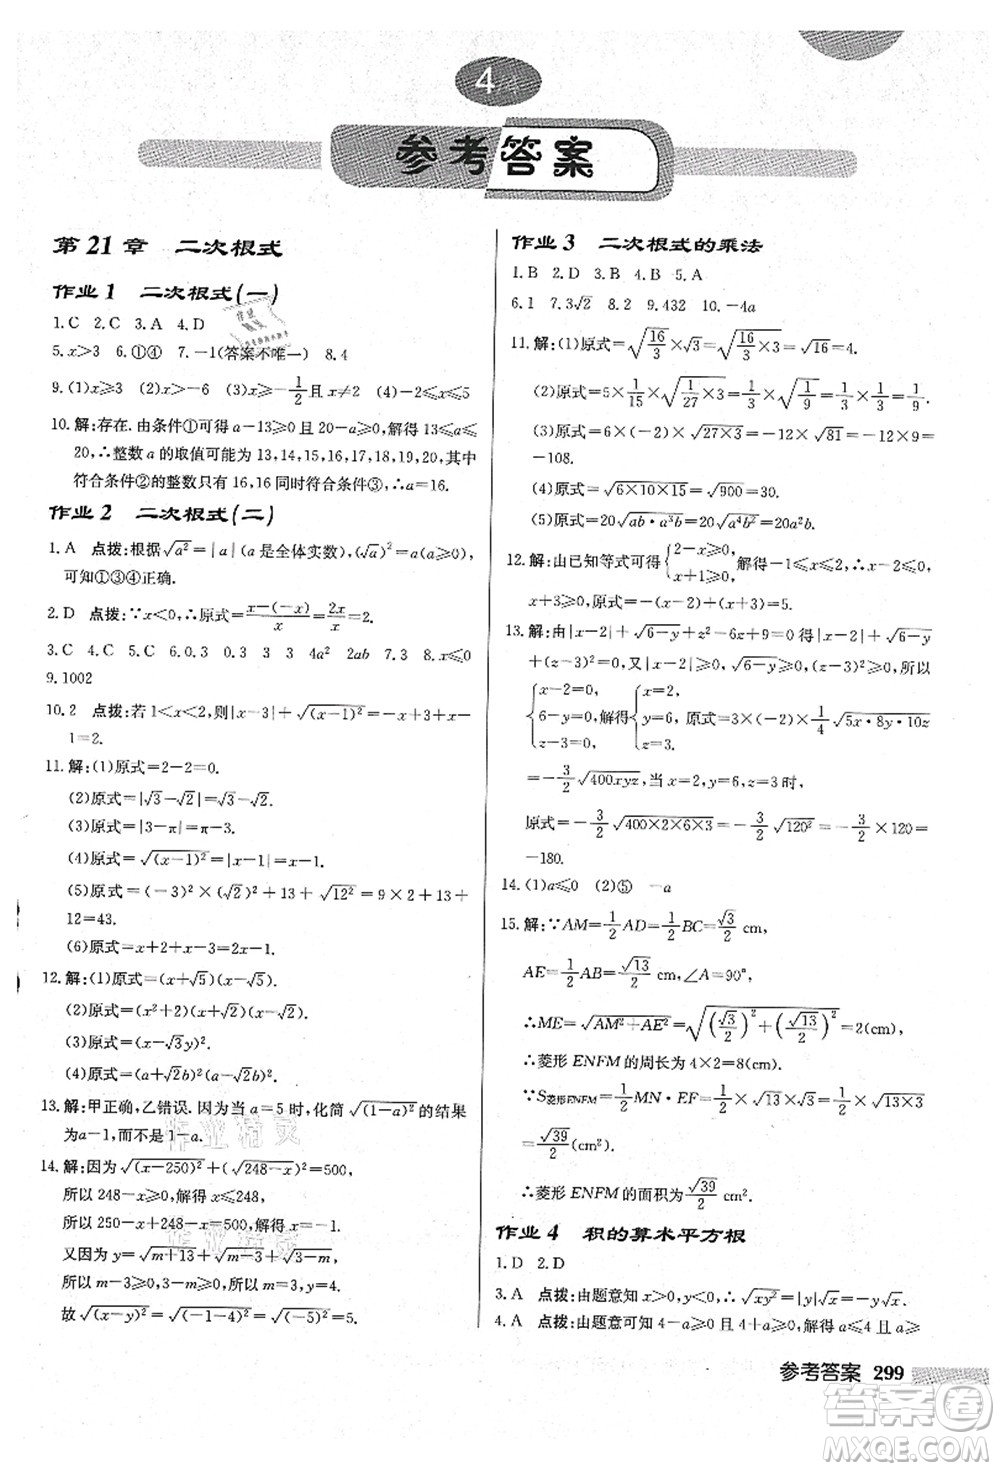 4
参考答案
第 21 章 二次根式
作业 1 二次根式(一)
1.C 2.C 3.A 4.D
5.x>3 6.①④ 7.-1(答案不唯一) 8.4
9.(1)x≥3 (2)x>-6 (3)x≥-1/2且x≠2 (4)-2≤x≤5
10.解:存在.由条件①可得a-13≥0且20-a≥0,解得13≤a≤
20,∴整数a的取值可能为13,14,15,16,17,18,19,20,其中
符合条件②的整数只有16,16同时符合条件③,∴a=16.
作业 2 二次根式(二)
1.A 点拨:根据√a²=|a|(a是全体实数),(√a)²=a(a≥0),
可知①③④正确.
2.D 点拨:∵x<0,∴原式=(x-(-x))/x=2x/x=2.
3.C 4.A 5.D 6.3 0.3 3 3 4a² 2ab 7.3 8.x≤0
9.1002
10.2 点拨:若1<x<2,则|x-3|+√(x-1)²=3-x+x-
1=2.
11.解:(1)原式=2-2=0.
(2)原式=|√3-√2|=√3-√2.
(3)原式=|3-π|=π-3.
(4)原式=√(x-1)²=|x-1|=1-x.
(5)原式=(-3)²×(√2)²+13+√12²=9×2+13+
12=43.
(6)原式=x+2+x-3=2x-1.
12.解:(1)原式=(x+√5)(x-√5).
(2)原式=(x²+2)(x+√2)(x-√2).
(3)原式=(x-√3y)².
(4)原式=(a+√2b)²(a-√2b)².
13.解:甲正确,乙错误.因为当a=5时,化简√(1-a)²的结果
为a-1,而不是1-a.
14.解:因为√(x-250)²+√(248-x)²=x-250+248-x...
所以248-x≥0,解得x≤248,
所以250-x+248-x=500,解得x=-1.
又因为y=√m-3+√3-m-4,
所以m-3≥0,3-m≥0,所以m=3,所以y=-4,
故√(x-y)²=√(-1-4)²=√(-5)²=5.
作业 3 二次根式的乘法
1.B 2.D 3.B 4.B 5.A
6.1 7.3√2 8.2 9.432 10.-4a
11.解:(1)原式=√(16/3)×√3=√(16/3×3)=√16=4.
(2)原式=5×1/15×√(1/27×3)=1/3×√(1/9)=1/3×1/3=1/9.
(3)原式=6×(-2)×√27×3=-12×√81=-12×9=
-108.
(4)原式=√6×10×15=√900=30.
(5)原式=20√ab·a³b=20√a⁴b²=20a²b.
12.解:由已知等式可得{2-x≥0, x+1≥0,解得-1≤x≤2,∴x-3<0,
x+3>0,∴原式=-(x-3)+(x+3-1)...=5.
13.解:由|x-2|+√6-y+z²-6z+9=0得|x-2|+√6-y
+(z-3)²=0,又|x-2|≥0,√6-y≥0,(z-3)²≥0,所以
{x-2=0, 6-y=0, z-3=0,解得{x=2, y=6, z=3. 原式=3×(-2)×1/4√5x·8y·10z
=-3/2√400xyz,当x=2,y=6,z=3时,
原式=-3/2√400×2×6×3=-3/2√120²=-3/2×120=
-180.
14.(1)a≤0 (2)⑤ -a
15.解:∵AM=1/2AD=1/2BC=√3/2 cm,
AE=1/2AB=√13/2 cm,∠A=90°,
∴ME=√AM²+AE²=√((√3/2)²+(√13/2)²)=2(cm),
∴菱形ENFM的周长为4×2=8(cm).
∵S菱形ENFM=1/2MN·EF=1/2×√13×√3=1/2√13×3=
√39/2(cm²),
∴菱形ENFM的面积为√39/2 cm².
作业 4 积的算术平方根
1.D 2.D
3.A 点拨:由题意知x>0,y<0,∴√xy²=|y|√x=-y√x.
4.A 点拨:由题意可知4-a≥0且a≥0,解得a≤4且a≥
参考答案 299
答案圈
MXQE.COM